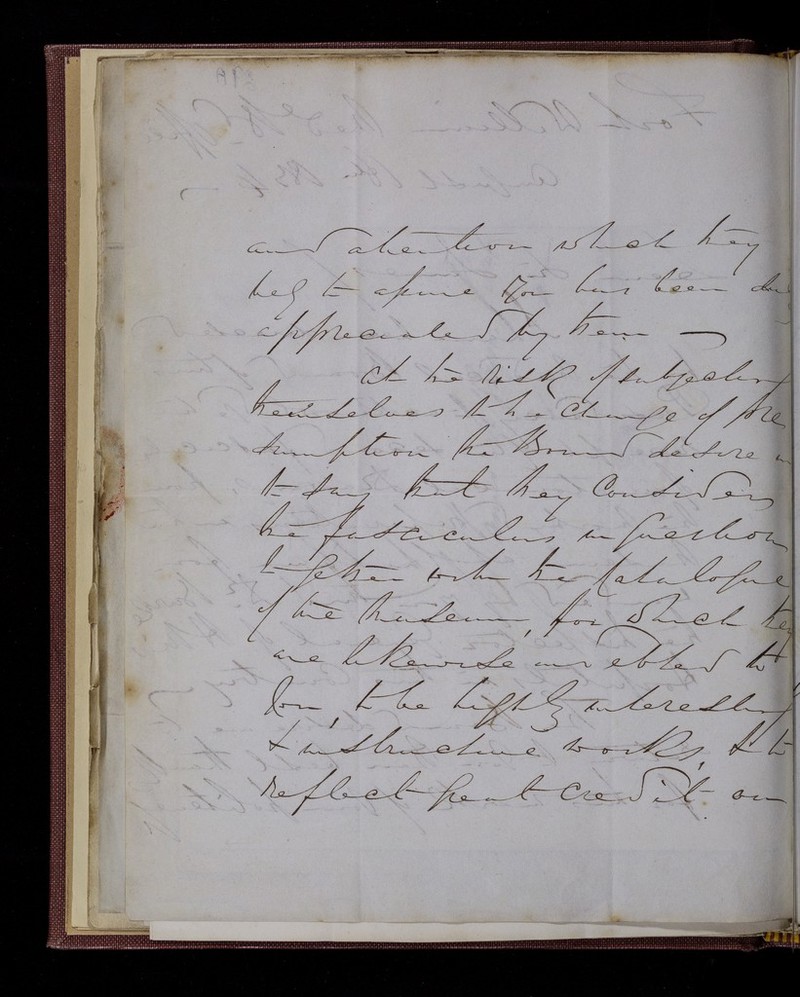 and attention which they
beg to assure you has been duly
appreciated by them —
At the risk of subjecting
themselves to the charge of pre
sumption the Board desire me
to say that they consider
the fasciculus in question
together with the Catalogue
of the Museum, for which they
are likewise indebted to
you, to be highly interesting
& instructive works, & to
reflect great credit on